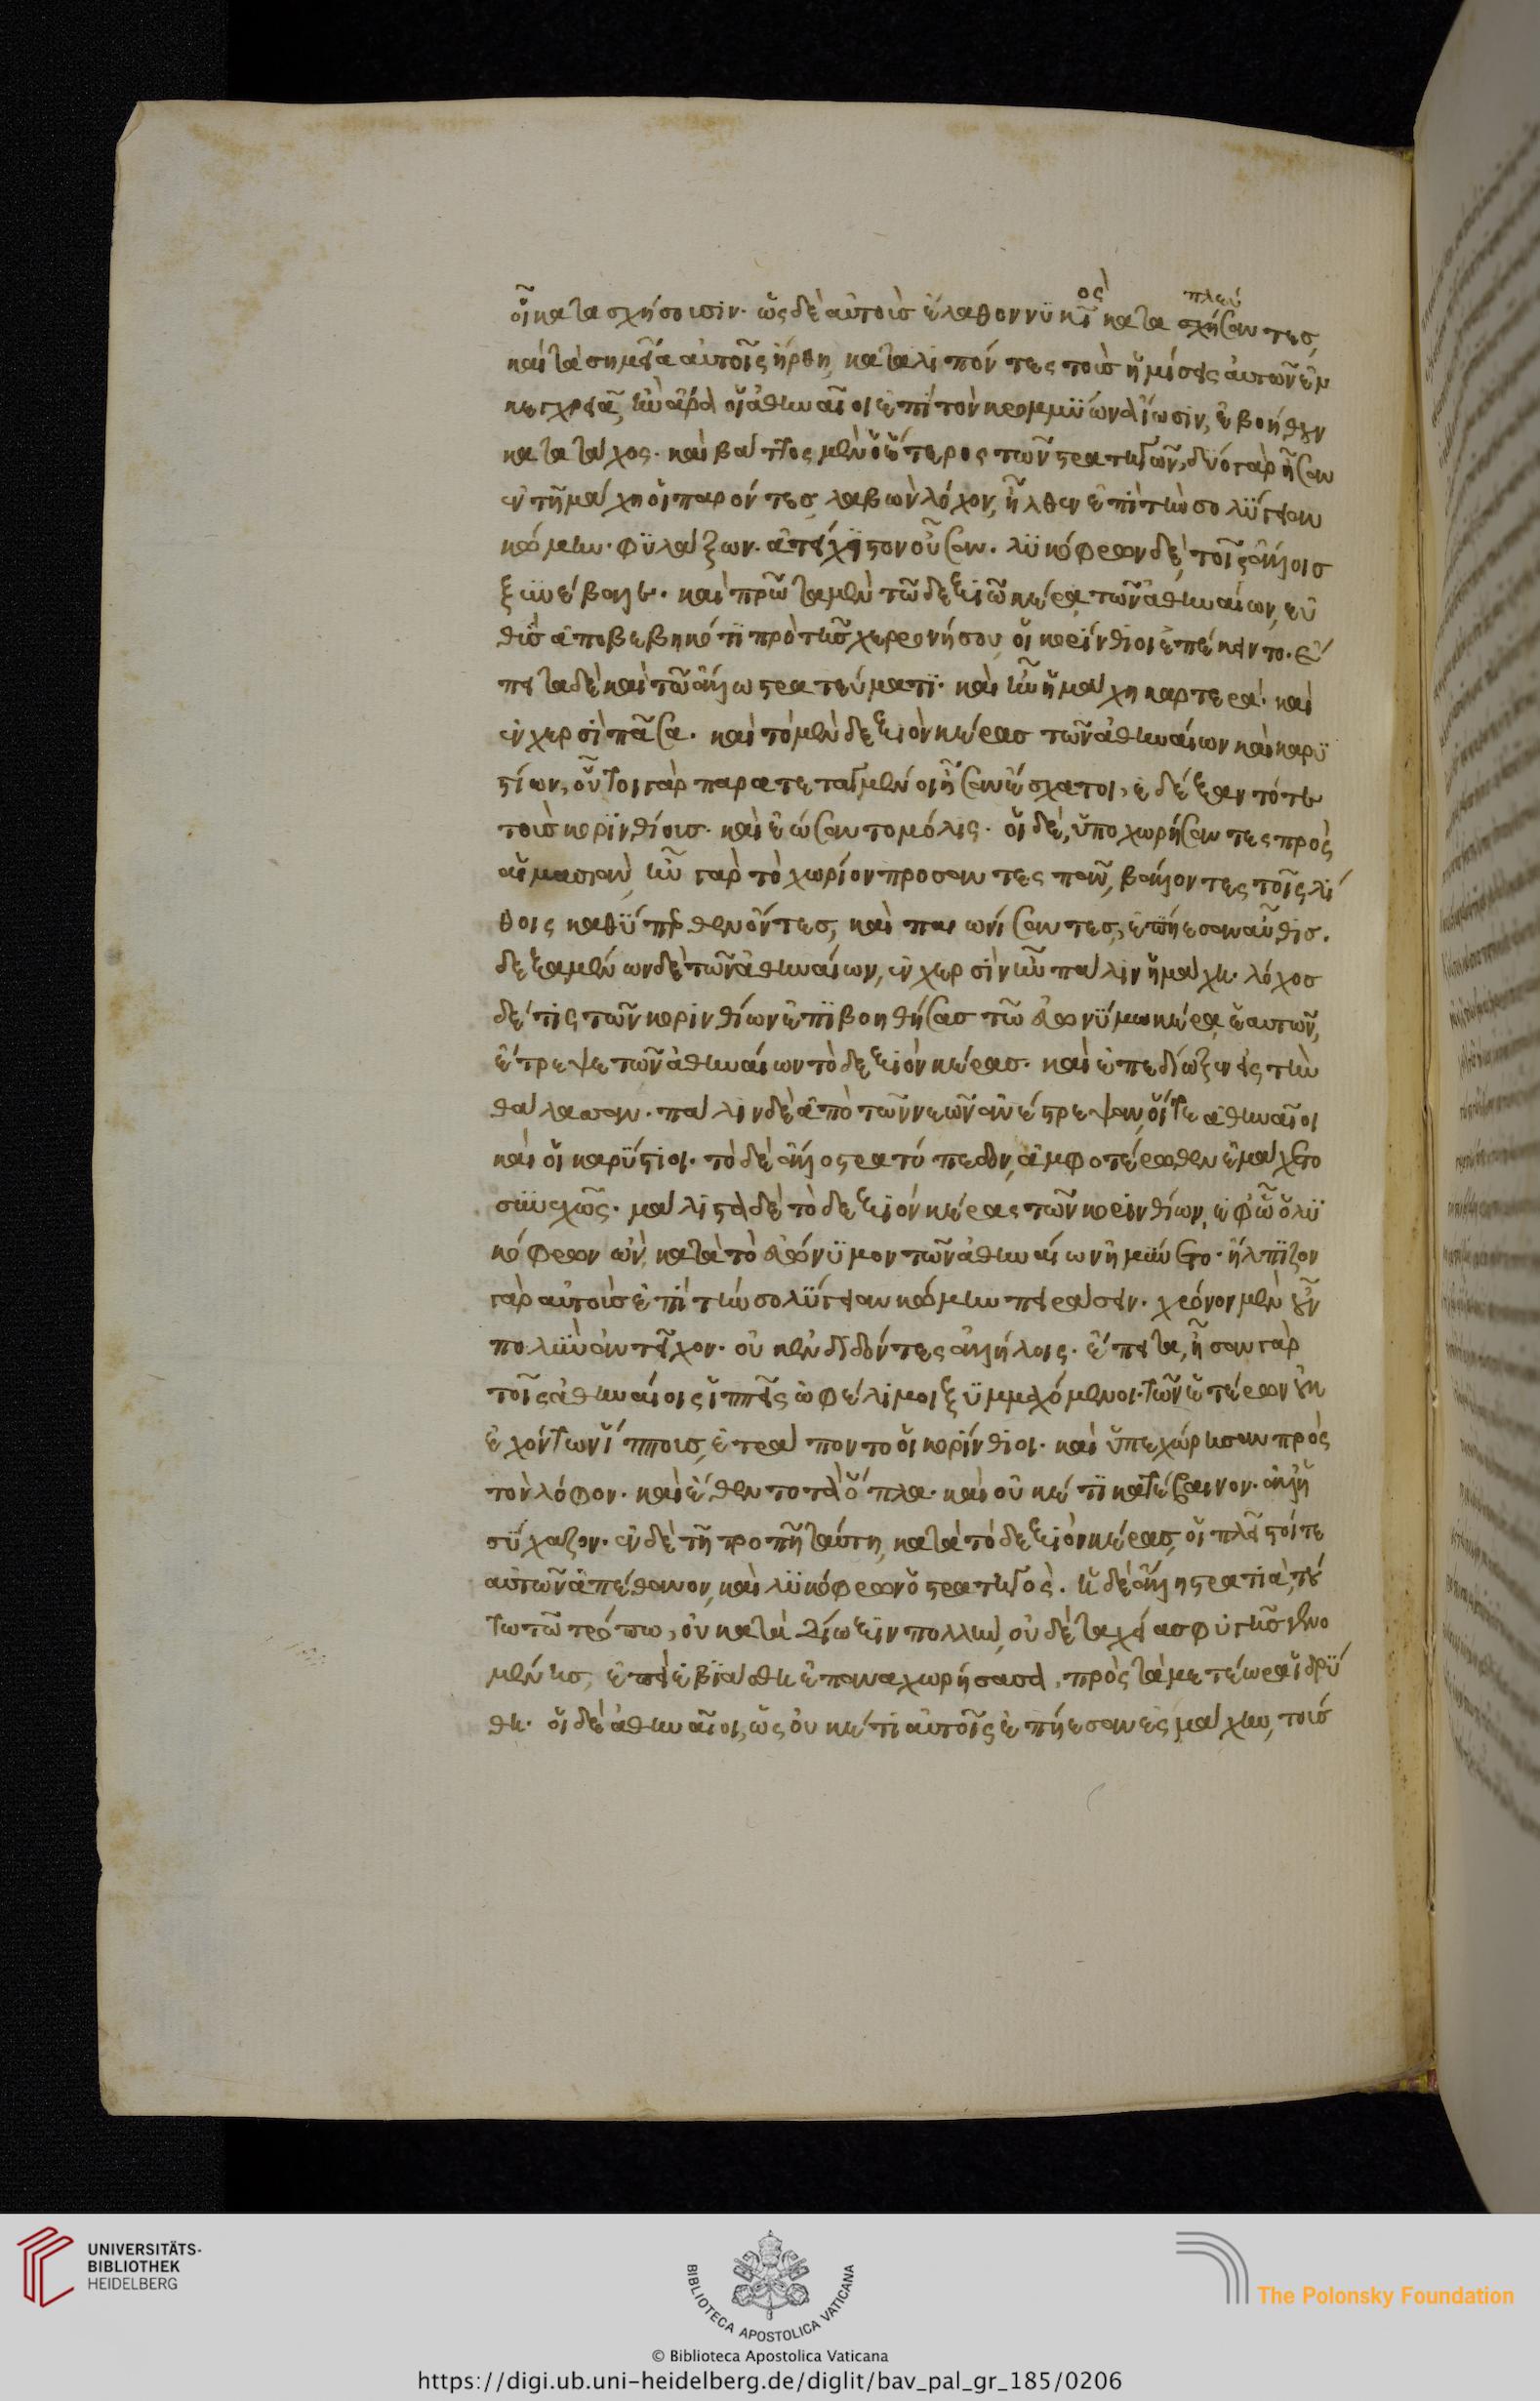 οἷ κατασχήσουσιν. ὡς δὲ αὐτοὺς ἔλαθον νυκτὶ κατασχήσαντες,
ὸς πλεύ
καὶ τὰ σημεῖα αὐτοῖς ἤρθη, καταλιπόντες τοὺς ἡμίσεις αὐτῶν ἐν
κεγχρεᾶ, ἢν ἄρα οἱ ἀθηναῖοι ἐπὶ τὸν κρομμυῶνα ἴωσιν, ἐβοήθουν
κατὰ τάχος. καὶ βάττος μὲν ὁ ἕτερος τῶν στρατηγῶν, δύο γὰρ ἦσαν
ἐν τῆ μάχη οἱ παρόντες, λαβὼν λόχον, ἦλθεν ἐπὶ τὴν σολύγειαν
κώμην φυλάξων ἀτείχιστον οὖσαν. λυκόφρων δὲ, τοῖς ἄλλοις
ξυνέβαλλε. καὶ πρῶτα μὲν τῶ δεξιῶ κέρα τῶν ἀθηναίων, εὐ
θὺς ἀποβεβηκότι πρὸ τῆς χερσονήσου, οἱ κορίνθιοι ἐπέκειντο. ἔ
πειτα δὲ καὶ τῶ ἄλλω στρατεύματι. καὶ ἦν ἡ μάχη καρτερά. καὶ
ἐν χερσὶ πᾶσα. καὶ τὸ μὲν δεξιὸν κέρας τῶν ἀθηναίων καὶ καρυ
στίων, οὗτοι γὰρ παρατεταγμένοι ἦσαν ἔσχατοι, ἐδέξαντό τε
τοὺς κορινθίους. καὶ ἐώσαντο μόλις. οἱ δὲ, ὑποχωρήσαντες πρὸς
αἱμασιὰν, ἦν γὰρ τὸ χωρίον πρόσαντες πᾶν, βάλλοντες τοῖς λί
θοις καθύπερθεν ὄντες, καὶ παιωνίσαντες, ἐπήεσαν αὖθις.
δεξαμένων δὲ τῶν ἀθηναίων, ἐν χερσὶν ἦν πάλιν ἡ μάχη. λόχος
δέ τις τῶν κορινθίων ἐπιβοηθήσας τῶ εὐωνύμω κέρα ἑαυτῶν,
ἔτρεψε τῶν ἀθηναίων τὸ δεξιὸν κέρας. καὶ ἐπεδίωξεν εἰς τὴν
θάλασσαν. πάλιν δὲ ἀπὸ τῶν νεῶν ἀνέστρεψαν, οἵ τε ἀθηναῖοι
καὶ οἱ καρύστιοι. τὸ δὲ ἄλλο στρατόπεδον, ἀμφοτέρωθεν ἐμάχετο
συνεχῶς. μάλιστα δὲ τὸ δεξιὸν κέρας τῶν κορινθίων, ἐφ' ὧ ὁ λυ
κόφρων ὢν, κατὰ τὸ εὐώνυμον τῶν ἀθηναίων ἠμύνετο. ἤλπιζον
γὰρ αὐτοὺς ἐπὶ τὴν σολύγειαν κώμην πειράσειν. χρόνον μὲν οὖν
πολὺν ἀντεῖχον. οὐκ ἐνδιδόντες ἀλλήλοις. ἔπειτα, ἦσαν γὰρ
τοῖς ἀθηναίοις ἱππεῖς ὠφέλιμοι ξυμμαχόμενοι. τῶν ἑτέρων οὐκ
ἐχόντων ἵππους, ἐτράποντο οἱ κορίνθιοι. καὶ ὑπεχώρησαν πρὸς
τὸν λόφον. καὶ ἔθεντο τὰ ὅπλα. καὶ οὐκέτι κατέβαινον. ἀλλ' ἡ
σύχαζον. ἐν δὲ τῆ τροπῆ ταύτη, κατὰ τὸ δεξιὸν κέρας, οἱ πλεῖστοί τε
αὐτῶν ἀπέθανον, καὶ λυκόφρων ὁ στρατηγός. ἡ δὲ ἄλλη στρατιὰ, τού
τω τῶ τρόπω, οὐ κατὰ δίωξιν πολλὴν, οὐδὲ ταχείας φυγῆς γενο
μένης, ἐπεὶ ἐβιάσθη ἐπαναχωρήσασα, πρὸς τὰ μετέωρα ἱδρύ
θη. οἱ δὲ ἀθηναῖοι, ὡς οὐκέτι αὐτοῖς ἐπήεσαν ἐς μάχην, τούς
UNIVERSITÄTS-
BIBLIOTHEK
HEIDELBERG
BIBLIOTECA APOSTOLICA VATICANA
The Polonsky Foundation
© Biblioteca Apostolica Vaticana
https://digi.ub.uni-heidelberg.de/diglit/bav_pal_gr_185/0206